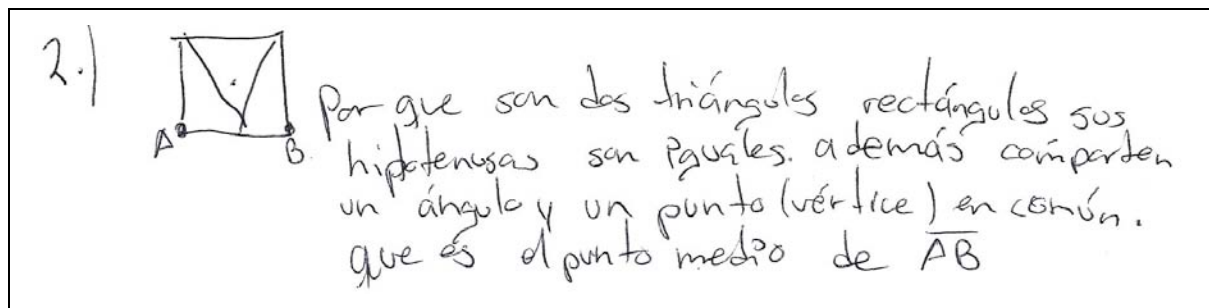 2.)
A
B.
Por que son dos triángulos rectángulos sus
hipotenusas son iguales. además comparten
un ángulo y un punto (vértice) en común.
que es el punto medio de AB